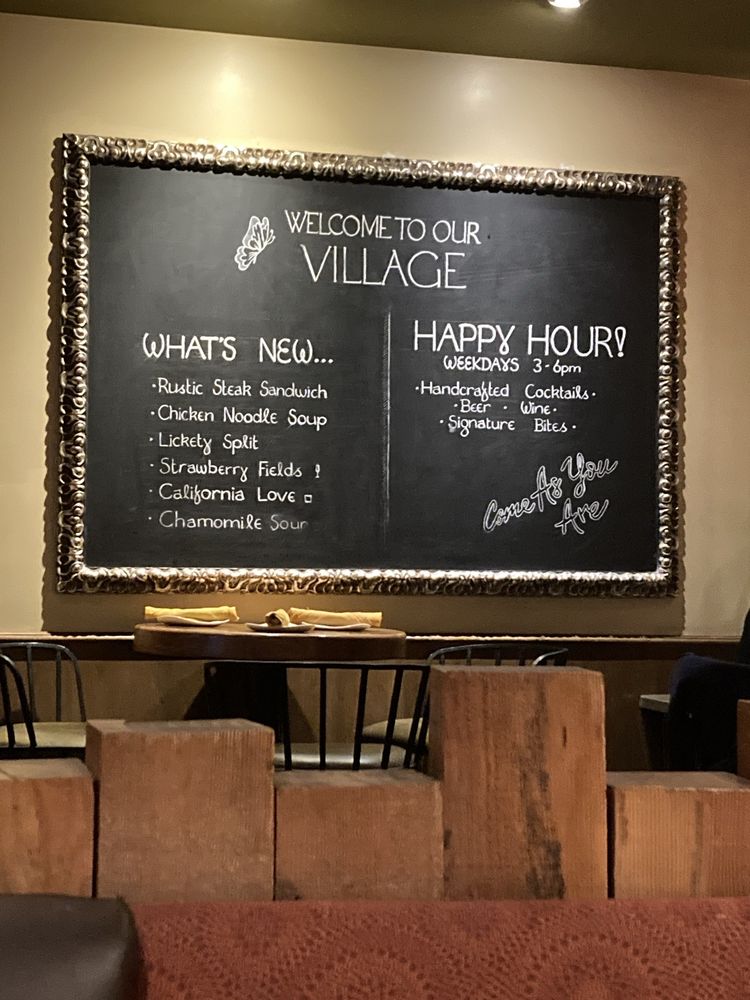 WELCOME TO OUR
VILLAGE
WHAT'S NEW...
·Rustic Steak Sandwich
·Chicken Noodle Soup
·Lickety Split
·Strawberry Fields !
·California Love □
·Chamomile Sour
HAPPY HOUR!
WEEKDAYS 3-6pm
·Handcrafted Cocktails·
·Beer · Wine·
·Signature Bites·
Come As You
Are